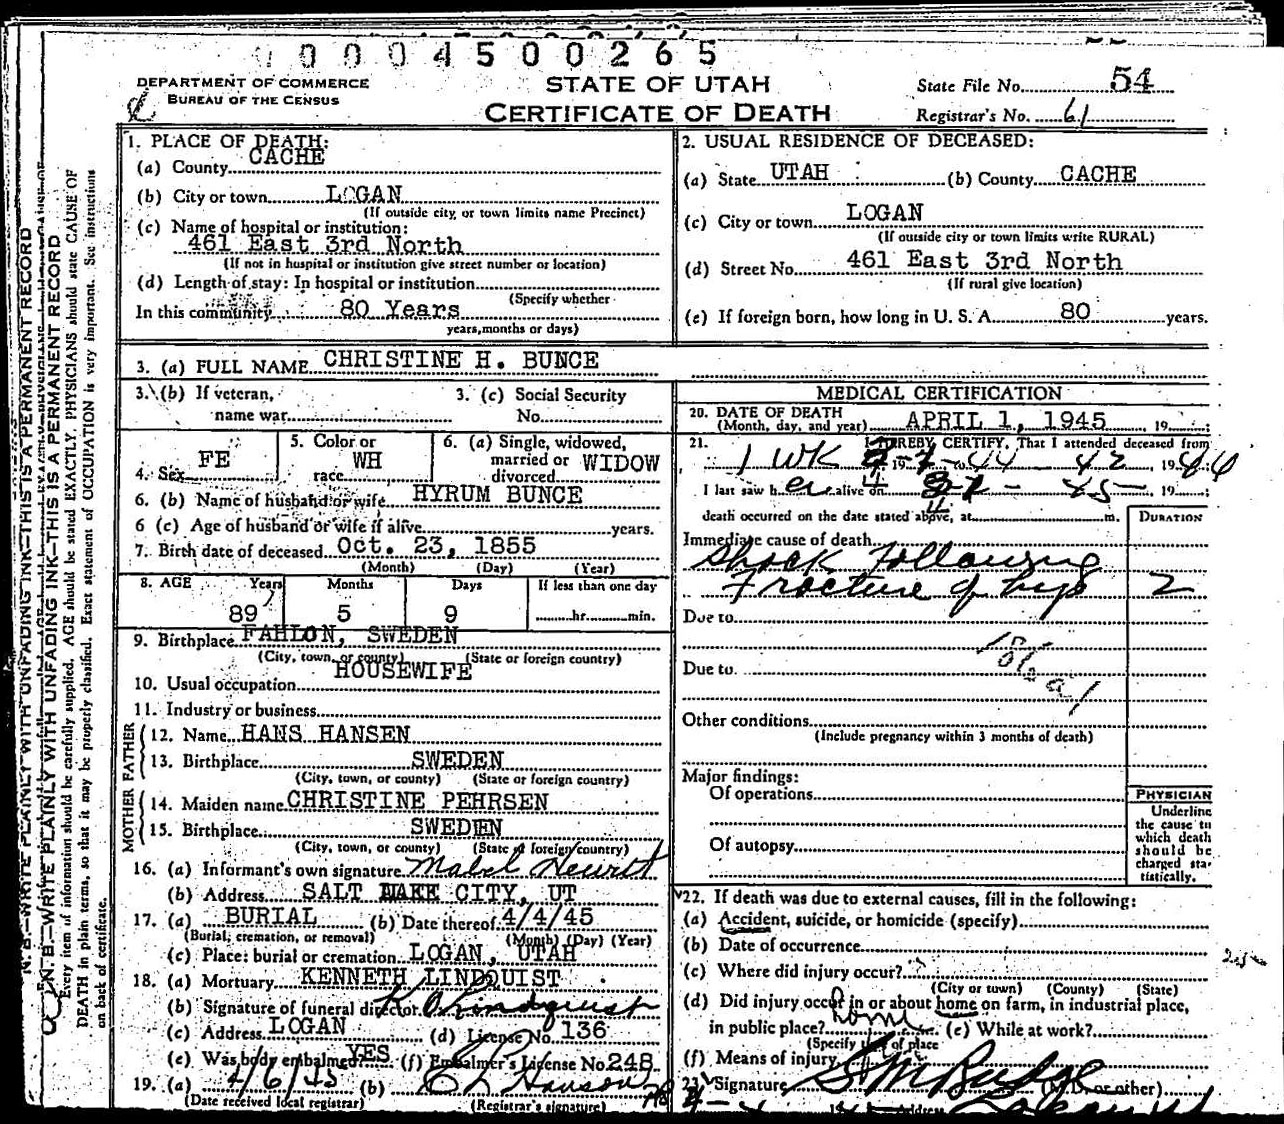 0 0 0 0 4 5 0 0 2 6 5
DEPARTMENT OF COMMERCE
BUREAU OF THE CENSUS
STATE OF UTAH
CERTIFICATE OF DEATH
State File No. 54
Registrar's No. 61
N. B.—WRITE PLAINLY WITH UNFADING INK—THIS IS A PERMANENT RECORD
N. B.—WRITE PLAINLY WITH UNFADING INK—THIS IS A PERMANENT RECORD
Every item of information should be carefully supplied. AGE should be stated EXACTLY. PHYSICIANS should state CAUSE OF
DEATH in plain terms, so that it may be properly classified. Exact statement of OCCUPATION is very important. See instructions
on back of certificate.
1. PLACE OF DEATH:
(a) County CACHE
(b) City or town LOGAN
(If outside city or town limits name Precinct)
(c) Name of hospital or institution:
461 East 3rd North
(If not in hospital or institution give street number or location)
(d) Length of stay: In hospital or institution
(Specify whether
In this community 80 Years
years, months or days)
2. USUAL RESIDENCE OF DECEASED:
(a) State UTAH (b) County CACHE
(c) City or town LOGAN
(If outside city or town limits write RURAL)
(d) Street No. 461 East 3rd North
(If rural give location)
(e) If foreign born, how long in U. S. A. 80 years.
3. (a) FULL NAME CHRISTINE H. BUNCE
3. (b) If veteran,
name war
3. (c) Social Security
No.
4. Sex FE
5. Color or
race WH
6. (a) Single, widowed,
married or
divorced WIDOW
6. (b) Name of husband or wife HYRUM BUNCE
6 (c) Age of husband or wife if alive years.
7. Birth date of deceased Oct. 23, 1855
(Month) (Day) (Year)
8. AGE Years Months Days If less than one day
89 5 9 hr. min.
9. Birthplace FAHLON, SWEDEN
(City, town, or county) (State or foreign country)
10. Usual occupation HOUSEWIFE
11. Industry or business
FATHER
12. Name HANS HANSEN
13. Birthplace SWEDEN
(City, town, or county) (State or foreign country)
MOTHER
14. Maiden name CHRISTINE PEHRSEN
15. Birthplace SWEDEN
(City, town, or county) (State or foreign country)
16. (a) Informant's own signature Mabel Hewitt
(b) Address SALT LAKE CITY, UT
17. (a) BURIAL (b) Date thereof 4/4/45
(Burial, cremation, or removal) (Month) (Day) (Year)
(c) Place: burial or cremation LOGAN, UTAH
18. (a) Mortuary KENNETH LINDQUIST
(b) Signature of funeral director K O Lindquist
(c) Address LOGAN (d) License No. 136
(e) Was body embalmed YES (f) Embalmer's License No. 248
19. (a) 4/6/45 (b)
(Date received local registrar) (Registrar's signature)
MEDICAL CERTIFICATION
20. DATE OF DEATH
(Month, day, and year) APRIL 1, 1945 , 19 ;
21. I HEREBY CERTIFY, That I attended deceased from
1 WK
I last saw her alive on , 19 ;
death occurred on the date stated above, at m.
DURATION
Immediate cause of death
Shock following
Fracture of hip 2
Due to
Due to
Other conditions
(Include pregnancy within 3 months of death)
Major findings:
Of operations
Of autopsy
PHYSICIAN
Underline
the cause to
which death
should be
charged sta-
tistically.
22. If death was due to external causes, fill in the following:
(a) Accident, suicide, or homicide (specify)
(b) Date of occurrence
(c) Where did injury occur?
(City or town) (County) (State)
(d) Did injury occur in or about home on farm, in industrial place,
in public place? home (e) While at work?
(Specify type of place
(f) Means of injury
23. Signature (M.D. or other)
Address